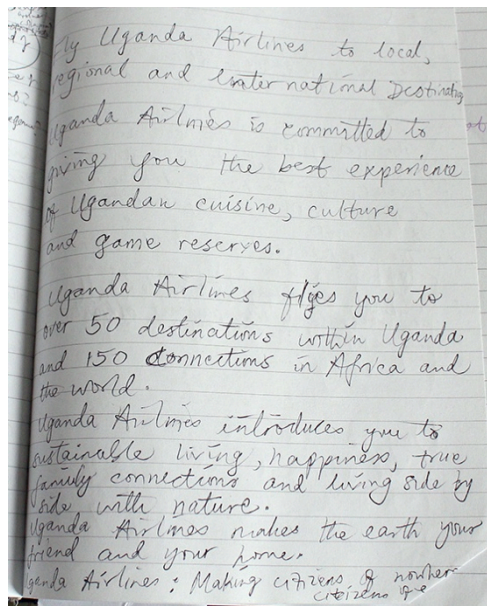 Fly Uganda Airlines to local,
regional and international Destinating
Uganda Airlines is committed to
giving you the best experience
of Ugandan cuisine, culture
and game reserves.
Uganda Airlines flies you to
over 50 destinations within Uganda
and 150 connections in Africa and
the world.
Uganda Airlines introduces you to
sustainable living, happiness, true
family connections and living side by
side with nature.
Uganda Airlines makes the earth your
friend and your home.
Uganda Airlines: Making citizens of nowhere
citeizens